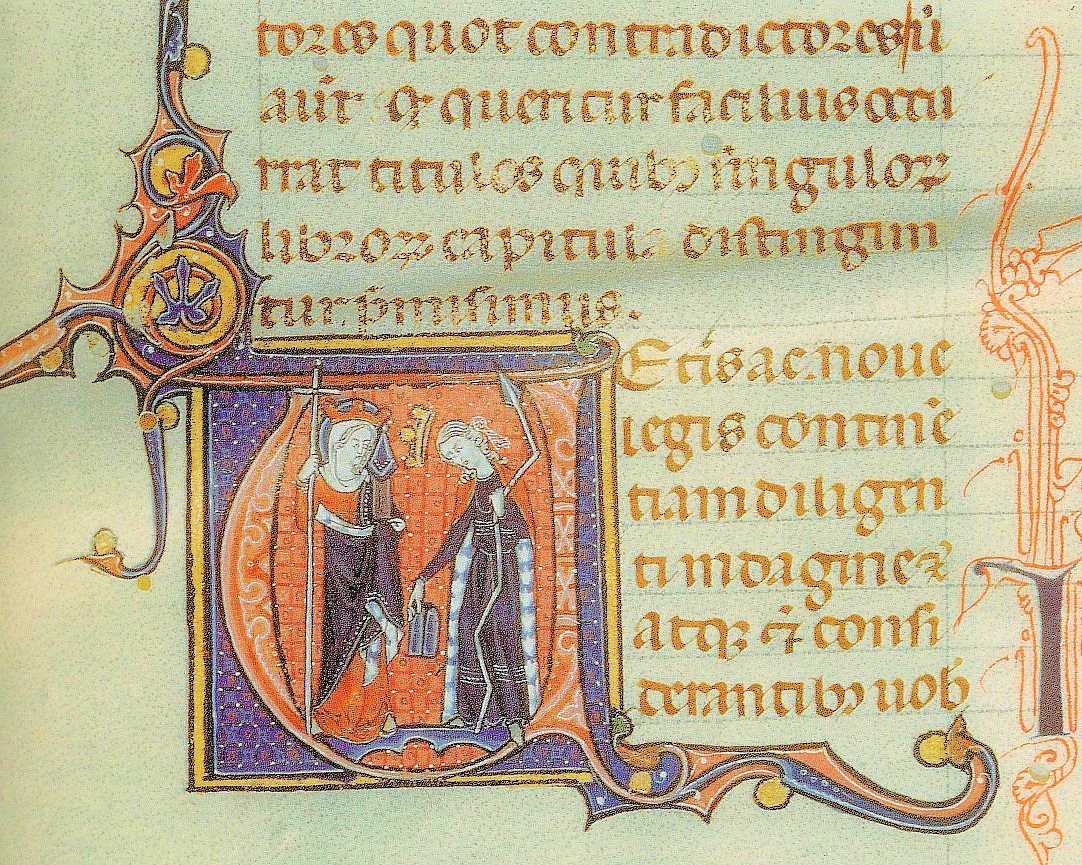 tores quot contradictores fu
aut̄ et querentur facilius atu
rrat titulos quibꝫ singuloꝝ
libroꝝ capitula distingun
tur p̄misimus.
Et̄is ac noue
legis contine
tiam diligen
ti indagine ⁊
atqꝫ ⁊̄ consi
derantibꝫ uob̄
I